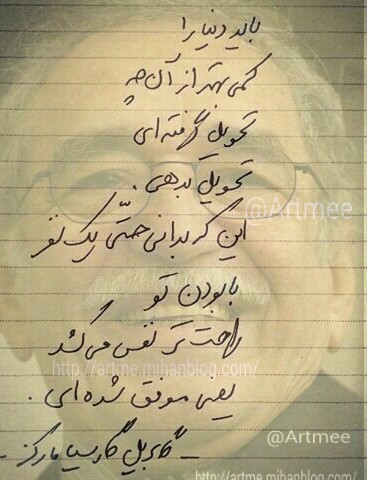 باید دنیا را
کمی بهتر از آن چه
تحویل گرفته‌ای
تحویل بدهی.
@Artmee
این که بدانی حتّی یک نفر
با بودن تو
راحت تر نفس می‌کشد
http://artme.mihanblog.com/
یعنی موفق شده‌ای.
@Artmee
- گابریل گارسیا مارکز -
http://artme.mihanblog.com/